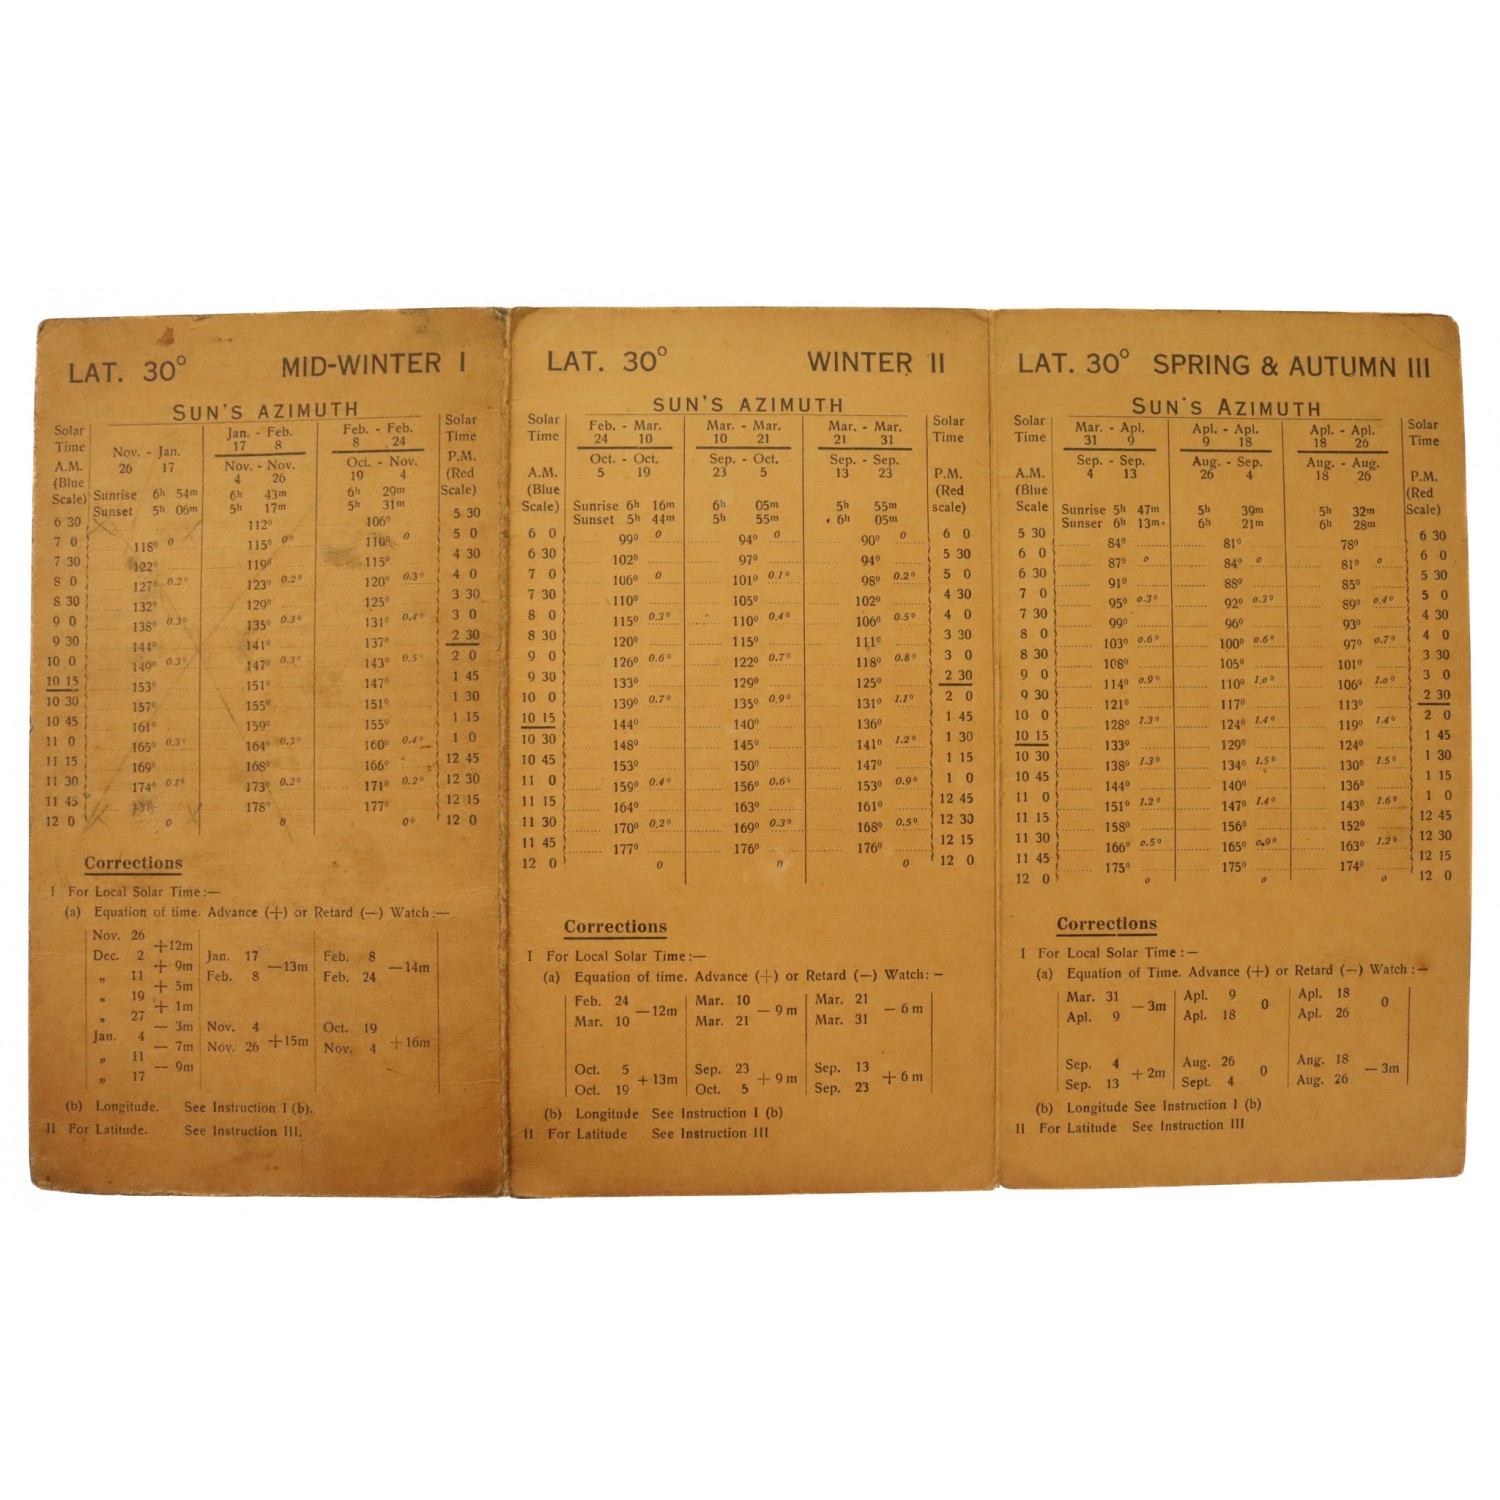 LAT. 30° MID-WINTER I
SUN'S AZIMUTH
Solar Time A.M. (Blue Scale)
Nov. - Jan.
26 17
Sunrise 6h 54m
Sunset 5h 06m
Jan. - Feb.
17 8
Nov. - Nov.
4 26
6h 43m
5h 17m
Feb. - Feb.
8 24
Oct. - Nov.
19 4
6h 29m
5h 31m
Solar Time P.M. (Red Scale)
6 30 112° 106° 5 30
7 0 118° 0 115° 0° 110° 0 5 0
7 30 122° 119° 115° 4 30
8 0 127° 0.2° 123° 0.2° 120° 0.3° 4 0
8 30 132° 129° 125° 3 30
9 0 138° 0.3° 135° 0.3° 131° 0.4° 3 0
9 30 144° 141° 137° 2 30
10 0 149° 0.3° 147° 0.3° 143° 0.5° 2 0
10 15 153° 151° 147° 1 45
10 30 157° 155° 151° 1 30
10 45 161° 159° 155° 1 15
11 0 165° 0.3° 164° 0.3° 160° 0.4° 1 0
11 15 169° 168° 166° 12 45
11 30 174° 0.1° 173° 0.2° 171° 0.2° 12 30
11 45 178° 177° 12 15
12 0 0 0 0° 12 0
Corrections
I For Local Solar Time :—
(a) Equation of time. Advance (+) or Retard (—) Watch :—
Nov. 26
+12m
Dec. 2
+ 9m
„ 11
+ 5m
„ 19
+ 1m
„ 27
— 3m
Jan. 4
— 7m
„ 11
— 9m
„ 17
Jan. 17
Feb. 8 —13m
Nov. 4
Nov. 26 +15m
Feb. 8
Feb. 24 —14m
Oct. 19
Nov. 4 +16m
(b) Longitude. See Instruction I (b).
II For Latitude. See Instruction III.
LAT. 30° WINTER II
SUN'S AZIMUTH
Solar Time A.M. (Blue Scale)
Feb. - Mar.
24 10
Oct. - Oct.
5 19
Sunrise 6h 16m
Sunset 5h 44m
Mar. - Mar.
10 21
Sep. - Oct.
23 5
6h 05m
5h 55m
Mar. - Mar.
21 31
Sep. - Sep.
13 23
5h 55m
6h 05m
Solar Time P.M. (Red scale)
6 0 99° 0 94° 0 90° 0 6 0
6 30 102° 97° 94° 5 30
7 0 106° 0 101° 0.1° 98° 0.2° 5 0
7 30 110° 105° 102° 4 30
8 0 115° 0.3° 110° 0.4° 106° 0.5° 4 0
8 30 120° 115° 111° 3 30
9 0 126° 0.6° 122° 0.7° 118° 0.8° 3 0
9 30 133° 129° 125° 2 30
10 0 139° 0.7° 135° 0.9° 131° 1.1° 2 0
10 15 144° 140° 136° 1 45
10 30 148° 145° 141° 1.2° 1 30
10 45 153° 150° 147° 1 15
11 0 159° 0.4° 156° 0.6° 153° 0.9° 1 0
11 15 164° 163° 161° 12 45
11 30 170° 0.2° 169° 0.3° 168° 0.5° 12 30
11 45 177° 176° 176° 12 15
12 0 0 0 0 12 0
Corrections
I For Local Solar Time :—
(a) Equation of time. Advance (+) or Retard (—) Watch : —
Feb. 24
Mar. 10 —12m
Oct. 5
Oct. 19 +13m
Mar. 10
Mar. 21 — 9m
Sep. 23
Oct. 5 + 9m
Mar. 21
Mar. 31 — 6m
Sep. 13
Sep. 23 + 6m
(b) Longitude See Instruction I (b)
II For Latitude See Instruction III
LAT. 30° SPRING & AUTUMN III
SUN'S AZIMUTH
Solar Time A.M. (Blue Scale
Mar. - Apl.
31 9
Sep. - Sep.
4 13
Sunrise 5h 47m
Sunser 6h 13m.
Apl. - Apl.
9 18
Aug. - Sep.
26 4
5h 39m
6h 21m
Apl. - Apl.
18 26
Aug. - Aug.
18 26
5h 32m
6h 28m
Solar Time P.M. (Red Scale)
5 30 84° 81° 78° 6 30
6 0 87° 0 84° 0 81° 0 6 0
6 30 91° 88° 85° 5 30
7 0 95° 0.3° 92° 0.3° 89° 0.4° 5 0
7 30 99° 96° 93° 4 30
8 0 103° 0.6° 100° 0.6° 97° 0.7° 4 0
8 30 108° 105° 101° 3 30
9 0 114° 0.9° 110° 1.0° 106° 1.0° 3 0
9 30 121° 117° 113° 2 30
10 0 128° 1.3° 124° 1.4° 119° 1.4° 2 0
10 15 133° 129° 124° 1 45
10 30 138° 1.3° 134° 1.5° 130° 1.5° 1 30
10 45 144° 140° 136° 1 15
11 0 151° 1.2° 147° 1.4° 143° 1.6° 1 0
11 15 158° 156° 152° 12 45
11 30 166° 0.5° 165° 0.9° 163° 1.2° 12 30
11 45 175° 175° 174° 12 15
12 0 0 0 0 12 0
Corrections
I For Local Solar Time : —
(a) Equation of Time. Advance (+) or Retard (—) Watch : —
Mar. 31
Apl. 9 — 3m
Sep. 4
Sep. 13 + 2m
Apl. 9
Apl. 18 0
Aug. 26
Sept. 4 0
Apl. 18
Apl. 26 0
Ang. 18
Aug. 26 — 3m
(b) Longitude See Instruction I (b)
II For Latitude See Instruction III